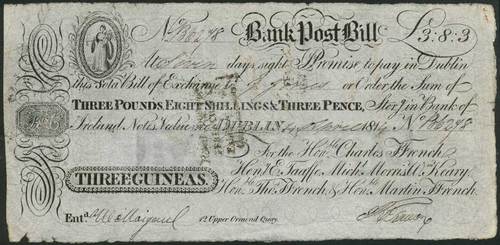 No. B6278 Bank Post Bill £3:8:3
At Seven days sight I Promise to pay in Dublin
this Sola Bill of Exchange to J. Jones or Order, the Sum of
THREE POUNDS, EIGHT SHILLINGS & THREE PENCE, Ster.g in Bank of
Ireland Notes, Value rec.d DUBLIN April 1814 No. B6278
For the Hon.ble Charles Ffrench,
Hen.y E. Taaffe, Mich.l Morris, R. Keary,
THREE GUINEAS. Hon.ble Tho.s Ffrench & Hon.ble Martin Ffrench.
Ent.d 12 Upper Ormond Quay.